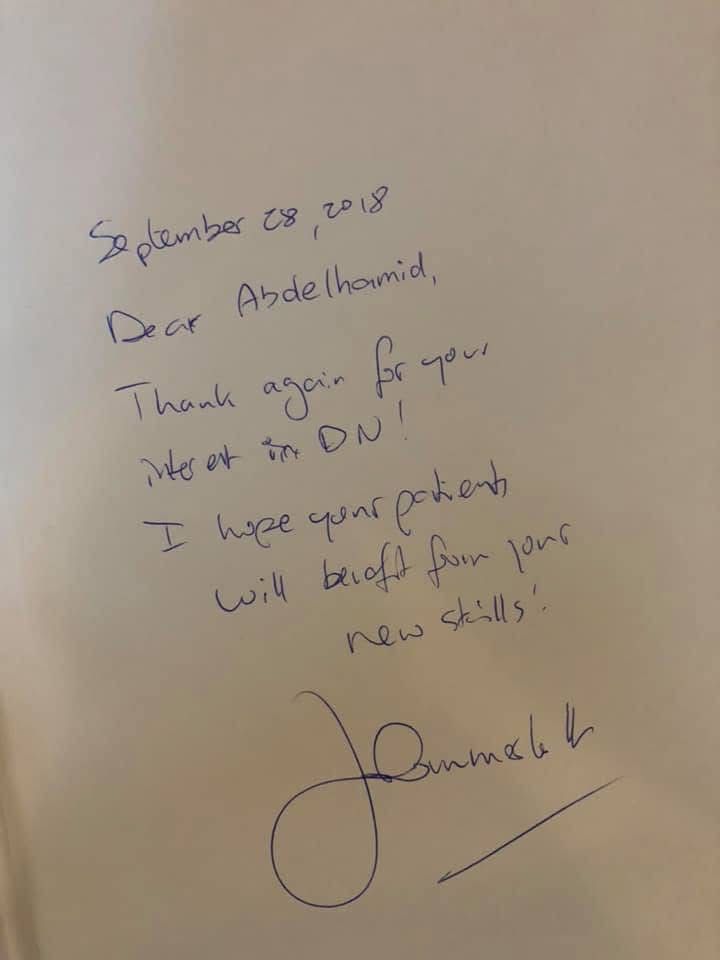 September 28, 2018
Dear Abdelhamid,
Thank again for your
interest in DN!
I hope your patients
will benefit from your
new skills!